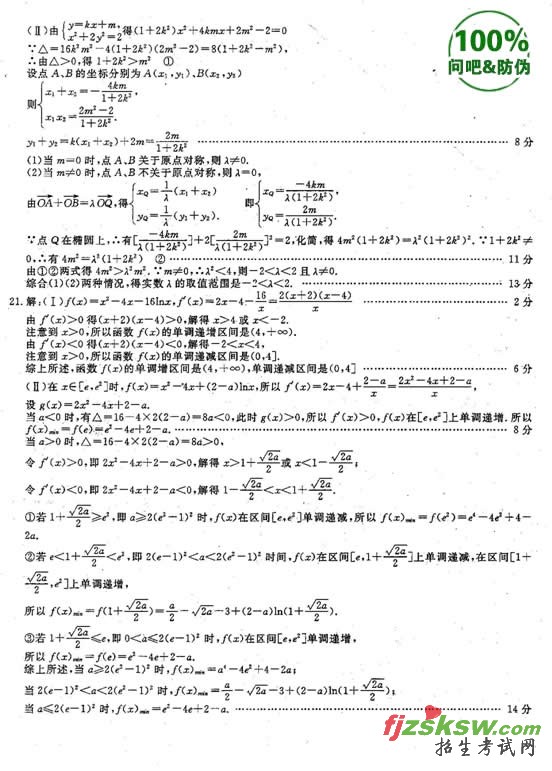 (Ⅱ)由{y=kx+m, x²+2y²=2 得(1+2k²)x²+4kmx+2m²-2=0
∵△=16k²m²-4(1+2k²)(2m²-2)=8(1+2k²-m²),
∴由△>0,得 1+2k²>m² ①
设点 A、B 的坐标分别为 A(x₁,y₁)、B(x₂,y₂)
则{x₁+x₂=-4km/(1+2k²), x₁x₂=(2m²-2)/(1+2k²).
y₁+y₂=k(x₁+x₂)+2m=2m/(1+2k²) …… 8 分
(1)当 m=0 时,点 A、B 关于原点对称,则 λ≠0.
(2)当 m≠0 时,点 A、B 不关于原点对称,则 λ=0,
由OA+OB=λOQ,得{x_Q=1/λ(x₁+x₂) y_Q=1/λ(y₁+y₂). 即{x_Q=-4km/(λ(1+2k²)), y_Q=2m/(λ(1+2k²)).
∵点 Q 在椭圆上,∴有[-4km/(λ(1+2k²))]²+2[2m/(λ(1+2k²))]²=2,化简,得 4m²(1+2k²)=λ²(1+2k²)². ∵1+2k²≠
0,∴有 4m²=λ²(1+2k²) ② …… 11 分
由①②两式得 4m²>λ²m². ∵m≠0,∴λ²<4,则-2<λ<2 且 λ≠0.
综合(1)(2)两种情况,得实数 λ 的取值范围是-2<λ<2. …… 13 分
21.解:(Ⅰ)f(x)=x²-4x-16lnx,f′(x)=2x-4-16/x=2(x+2)(x-4)/x …… 2 分
由 f′(x)>0 得(x+2)(x-4)>0,解得 x>4 或 x<-2.
注意到 x>0,所以函数 f(x)的单调递增区间是(4,+∞).
由 f′(x)<0 得(x+2)(x-4)<0,解得-2<x<4,
注意到 x>0,所以函数 f(x)的单调递减区间是(0,4].
综上所述,函数 f(x)的单调增区间是(4,+∞),单调减区间是(0,4] …… 6 分
(Ⅱ)在 x∈[e,e²]时,f(x)=x²-4x+(2-a)lnx,所以 f′(x)=2x-4+(2-a)/x=(2x²-4x+2-a)/x,
设 g(x)=2x²-4x+2-a.
当 a<0 时,有△=16-4×2(2-a)=8a<0,此时 g(x)>0,所以 f′(x)>0,f(x)在[e,e²]上单调递增. 所以
f(x)min=f(e)=e²-4e+2-a. …… 8 分
当 a>0 时,△=16-4×2(2-a)=8a>0,
令 f′(x)>0,即 2x²-4x+2-a>0,解得 x>1+√2a/2 或 x<1-√2a/2;
令 f′(x)<0,即 2x²-4x+2-a<0,解得 1-√2a/2<x<1+√2a/2.
①若 1+√2a/2≥e²,即 a≥2(e²-1)² 时,f(x)在区间[e,e²]单调递减,所以 f(x)min=f(e²)=e⁴-4e²+4-
2a.
②若 e<1+√2a/2<e²,即 2(e-1)²<a<2(e²-1)² 时间,f(x)在区间[e,1+√2a/2]上单调递减,在区间[1+
√2a/2,e²]上单调递增,
所以 f(x)min=f(1+√2a/2)=a/2-√2a-3+(2-a)ln(1+√2a/2).
③若 1+√2a/2≤e,即 0<a≤2(e-1)² 时,f(x)在区间[e,e²]单调递增,
所以 f(x)min=f(e)=e²-4e+2-a.
综上所述,当 a≥2(e²-1)² 时,f(x)min=a⁴-4e²+4-2a;
当 2(e-1)²<a<2(e²-1)² 时,f(x)min=a/2-√2a-3+(2-a)ln(1+√2a/2);
当 a≤2(e-1)² 时,f(x)min=e²-4e+2-a. …… 14 分
100%
问吧&防伪
fjzsksw.com
招生考试网